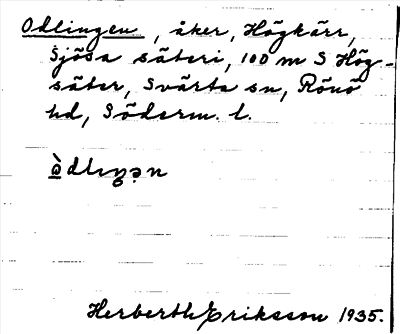 Odlingen, åker, Högkärr,
Sjösa säteri, 100 m S Hög-
säter, Svärta sn, Rönö
hd, Söderm. l.
òdlıŋən
Herberth Eriksson 1935.